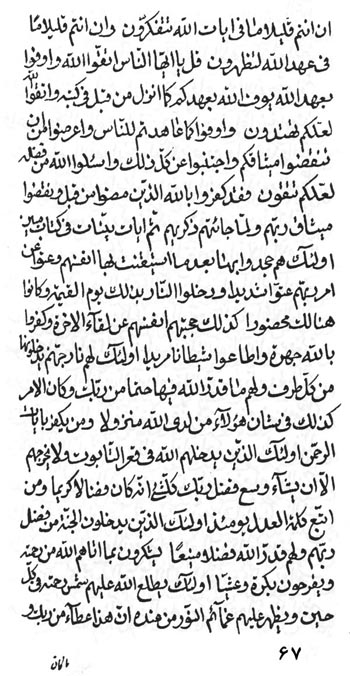 ان انتم قليلا ما فى ايات الله تتفكرون وان انتم قليلا ما
فى عهد الله لتظهرون قل يا ايها الناس اتقوا الله واوفوا
بعهد الله يوف الله بعهدكم كما انزل من قبل فى كتبه واتقوا الله
لعلكم تهتدون واوفوا كما عاهدتم للناس واعرضوا لمن
تنقضوا ميثاقكم واجتنبوا عن كل ذلك واسئلوا الله من فضله
لعلكم تتقون فقد كفروا بالله الذين مضوا من قبل ونقضوا
ميثاق ربهم ولما جائتهم ذكر ربهم ثم ايات بينات فى كتاب مبين
اولئك هم جحدوا بها بعد ما استيقنت لها انفسهم وعتوا عن
امر ربهم عتوا شديدا ودخلوا النار بذلك يوم القيمة وكانوا
هنالك محضرون كذلك حجبتهم انفسهم عن لقاء الاخرة وكفروا
بالله جهرة واطاعوا شيطانا مريدا اولئك لهم نار
من كل طرف ولهم ما قدر الله فيها حتما من ربك وكان الامر
كذلك فى شان هؤلاء من لدى الله منزولا ومن يكفر بايات
الرحمن اولئك الذين يدخلهم الله فى قعر التابوت ولا يخرجهم
الا ان يشاء وسع فضل ربك كلشئ انه كان فضالا كريما ومن
اتبع كلمة العدل يومئذ اولئك الذين يدخلون الجنة من فضل
ربهم ولهم قدر الله فضلا منيعا يتكرون بما اتاهم الله من رحمته
ويفرحون بكرة وعشيا اولئك يطلع الله عليهم شمس رحمته فى كل
حين ويظهر عليهم غمائم النور من عنده ان هذا عطاء من ربك و
٦٧